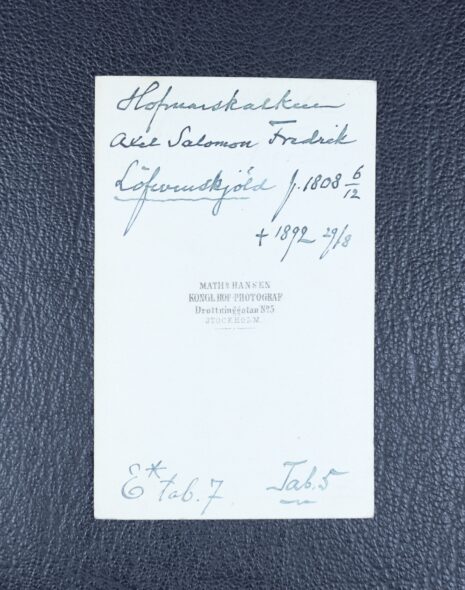 Hofmarskalken
Axel Salomon Fredrik
Löfvenskjöld f. 1808 6/12
+ 1892 29/8
MATHS HANSEN
KONGL. HOF-PHOTOGRAF
Drottninggatan No 5
STOCKHOLM.
E* tab. 7 Tab. 5